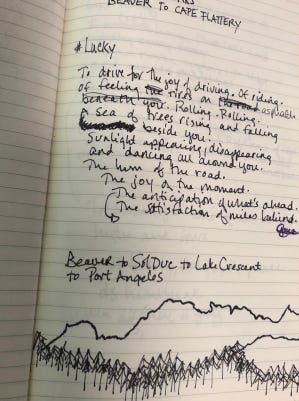 BEAVER TO CAPE FLATTERY
#Lucky
To drive for the joy of driving. Of riding.
of feeling the tires on the road asphalt
beneath you. Rolling. Rolling.
A Sea of trees rising and falling
beside you.
Sunlight appearing, disappearing
and dancing all around you.
The hum of the road.
The joy of the moment.
The anticipation of what's ahead.
The satisfaction of miles behind.
Beaver to Sol Duc to Lake Crescent
to Port Angeles